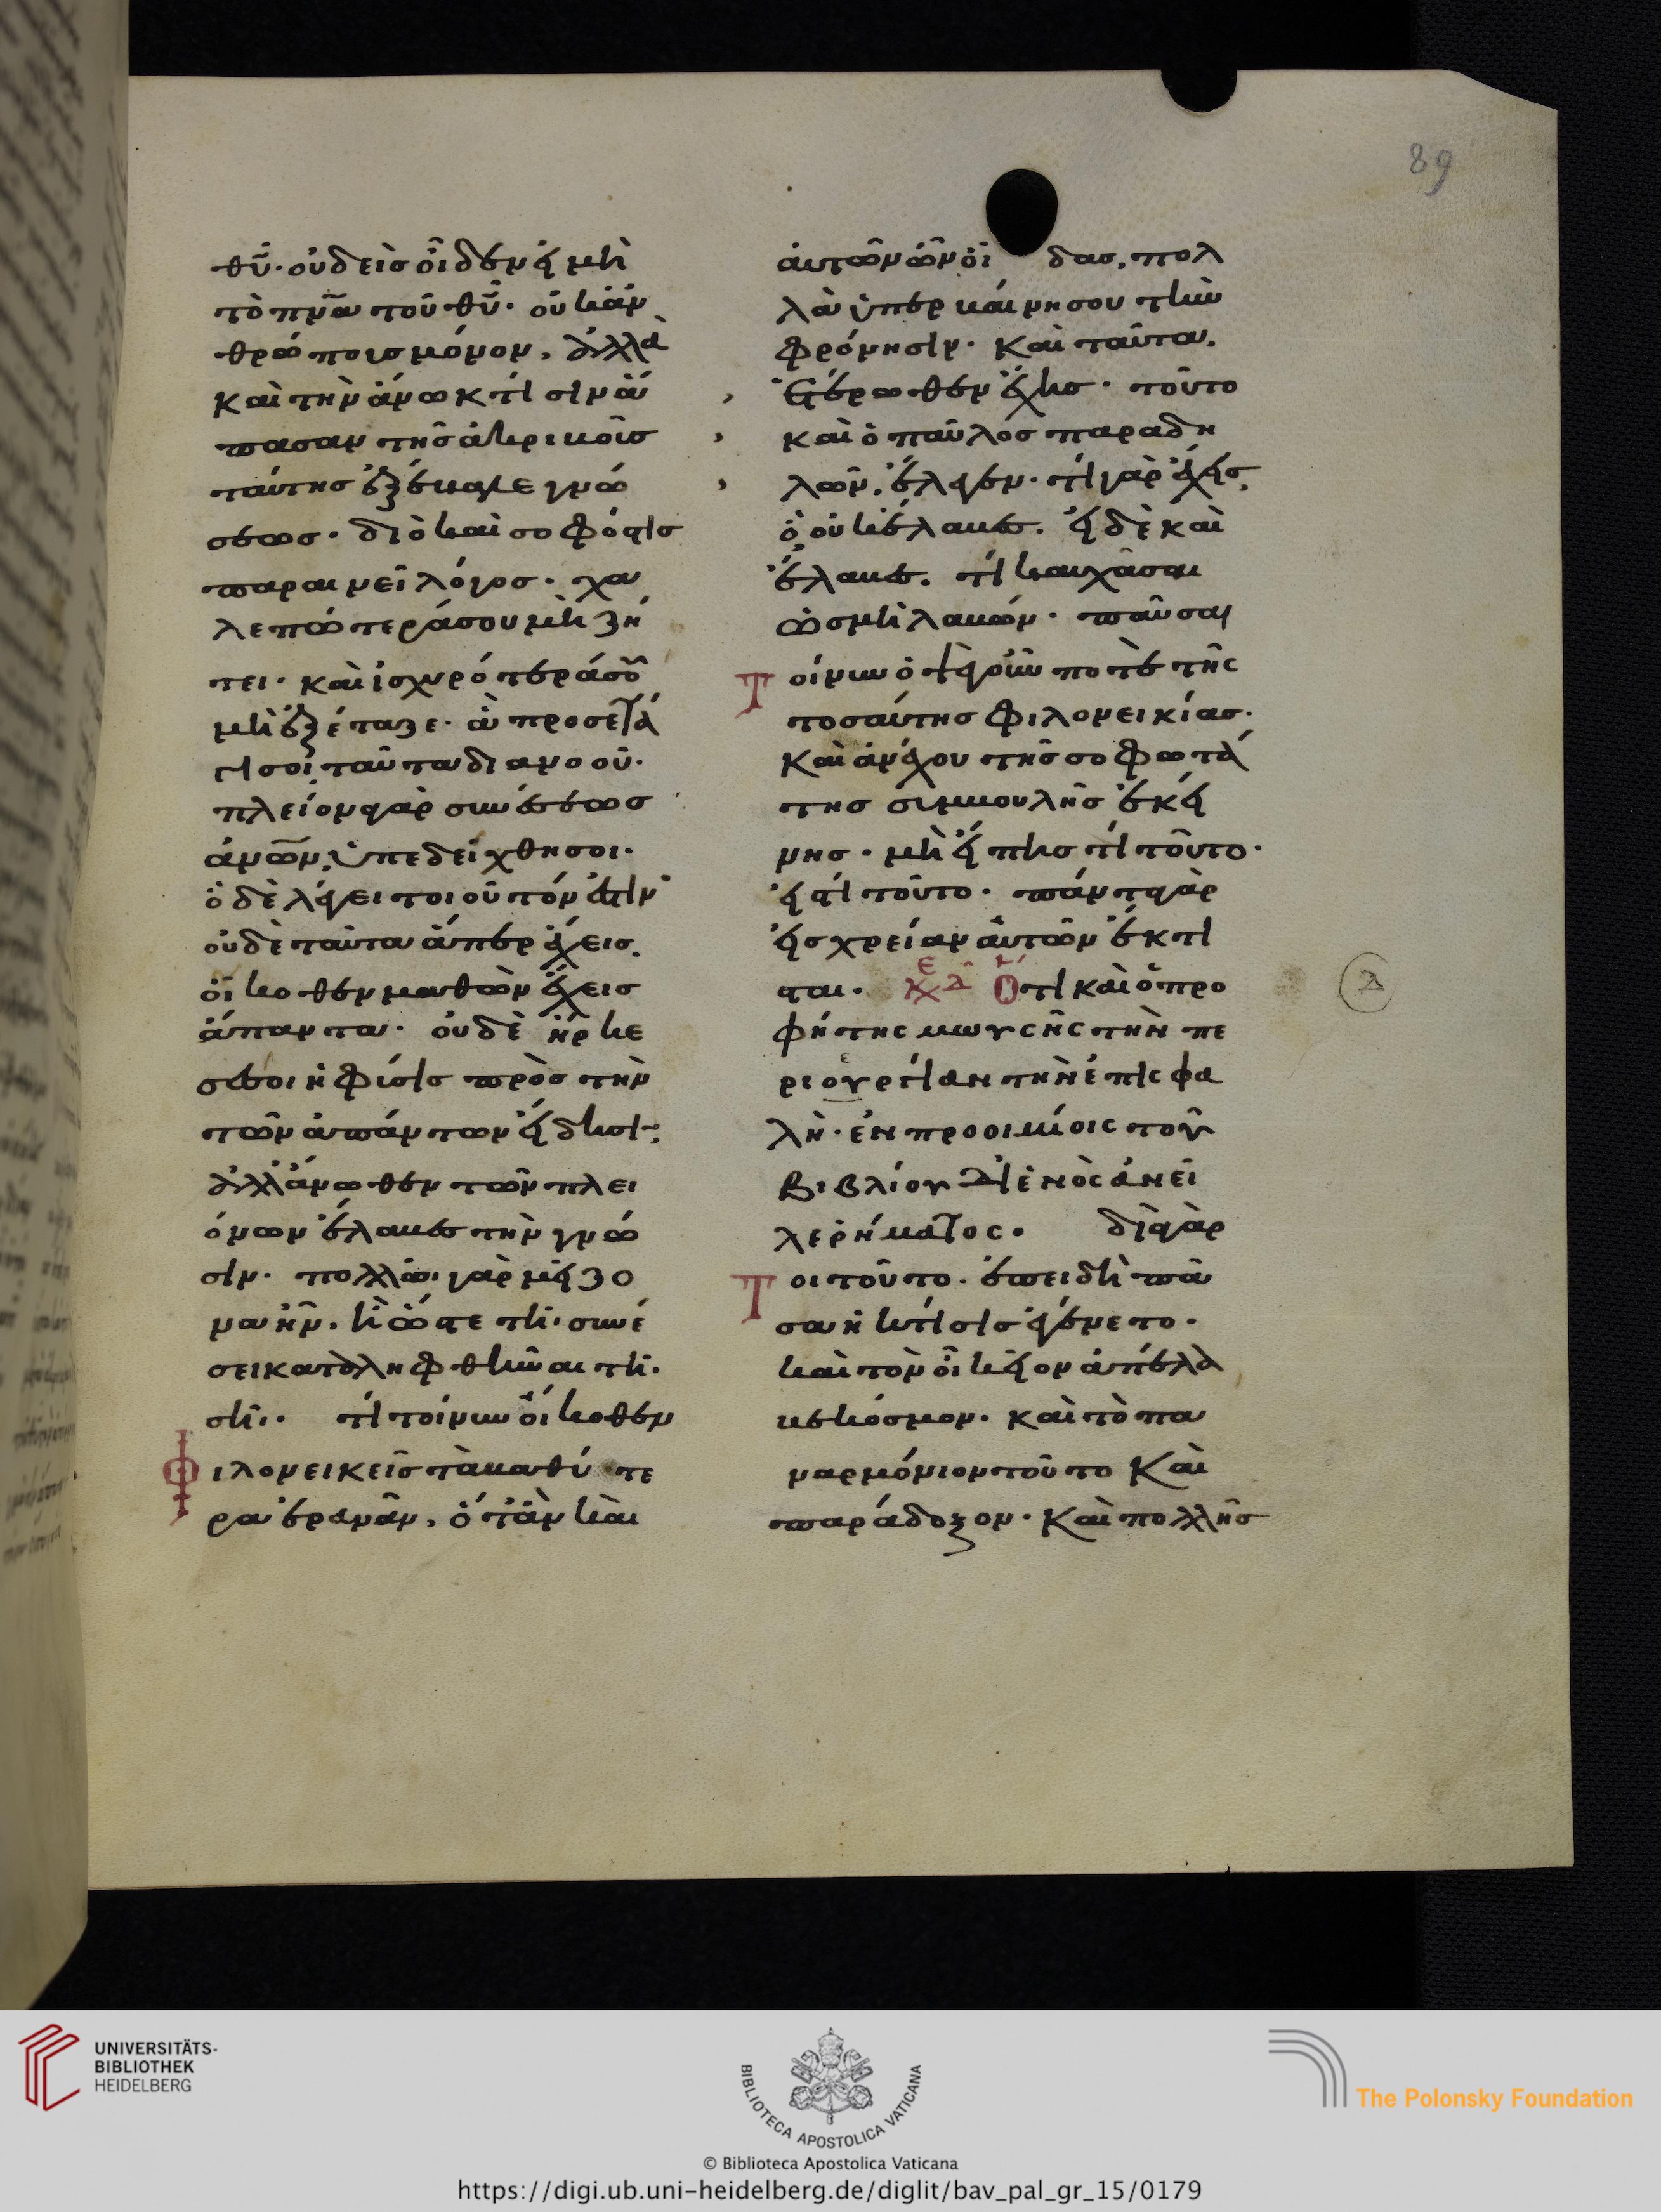 89
θῦ· οὐδεὶς οἶδεν εἰ μὴ
τὸ πνα τοῦ θῦ· οὐκ ἀν
θρώποις μόνον, ἀλλὰ
καὶ τὴν ἄνω κτίσιν ἅ
πασαν τῆς ἀκριβοῦς
ταύτης ἐξέβαλε γνώ
σεως· διὸ καὶ σοφός τις
παραινεῖ λόγος· χα
λεπώτερά σου μὴ ζή
τει· καὶ ἰσχυρότερά σου
μὴ ἐξέταζε· ἃ προσετά
γη σοι ταῦτα διανοοῦ·
πλείονα γὰρ συνέσεως
ἀνων, ὑπεδείχθη σοι·
ὃ δὲ λέγει τοιοῦτόν ἐστιν
οὐδὲ ταῦτα ἅπερ ἔχεις,
οἴκοθεν μαθὼν ἔχεις
ἅπαντα· οὐδὲ ἤρκε
σέ σοι ἡ φύσις πρὸς τὴν
τῶν ἁπάντων εἴδησιν,
ἀλλ' ἄνωθεν τῶν πλει
όνων ἔλαβε τὴν γνῶ
σιν· πολλῷ γὰρ μείζο
να ἦν, ἢ ὥστε τῇ συνέ
σει καταληφθῆναι τῇ
σῇ· τί τοίνυν οἴκοθεν
φιλονεικεῖς τὰ βαθύτε
ρα ἐρευνᾶν, ὅταν καὶ
αὐτῶν ὧν οἶδας, πολ
λὰ ὑπερβαίνῃ σου τὴν
φρόνησιν· καὶ ταῦτα,
ἑτέρωθεν ἔχῃς· τοῦτο
καὶ ὁ παῦλος παραδη
λῶν, ἔλεγεν· τί γὰρ ἔχεις,
ὃ οὐκ ἔλαβες· εἰ δὲ καὶ
ἔλαβες, τί καυχᾶσαι
ὡς μὴ λαβών· παῦσαι
τοίνυν ὀψέ γοῦν ποτὲ τῆς
τοσαύτης φιλονεικίας·
καὶ ἀνέχου τῆς σοφωτά
της συμβουλῆς ἐκεί
νης· μὴ εἴπῃς τί τοῦτο·
εἰς τί τοῦτο· πάντα γὰρ
εἰς χρείαν αὐτῶν ἔκτι
ται· Ὅτι καὶ ὁ προ
φήτης μωυσῆς τὴν πε
ριουργίαν τὴν ἐπισφα
λῆ· ἐν προοιμίοις τοῦ
βιβλίου δι' ἑνὸς ἀνεῖ
λε ῥήματος· διὰ γάρ
τοι τοῦτο· ἐπειδὴ πᾶ
σα ἡ κτίσις ἐγένετο·
καὶ τὸν οἰκεῖον ἀπέλα
βε κόσμον· καὶ τὸ πα
ναρμόνιον τοῦτο καὶ
παράδοξον· καὶ πολλῆς
UNIVERSITÄTS-
BIBLIOTHEK
HEIDELBERG
BIBLIOTECA APOSTOLICA VATICANA
The Polonsky Foundation
© Biblioteca Apostolica Vaticana
https://digi.ub.uni-heidelberg.de/diglit/bav_pal_gr_15/0179